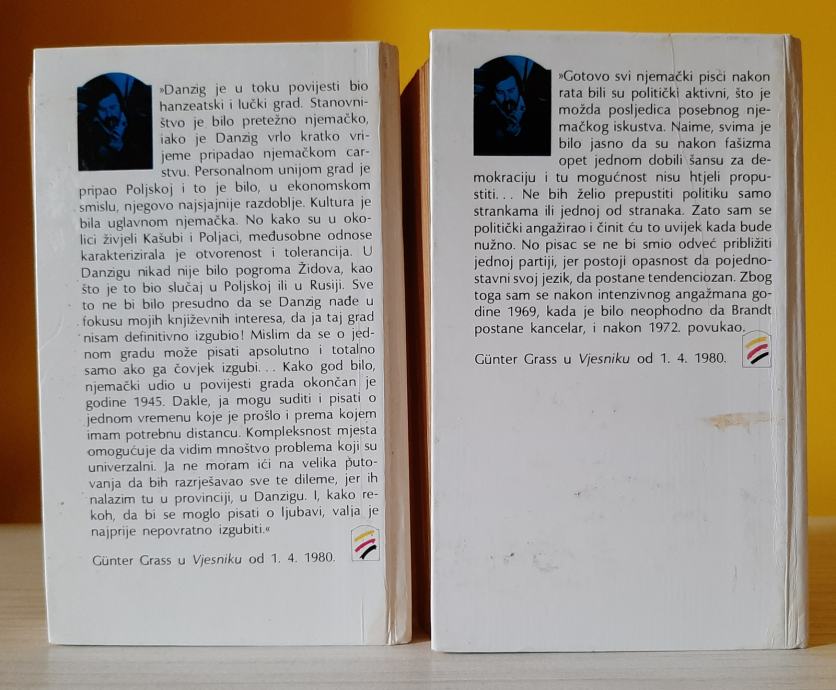 »Danzig je u toku povijesti bio
hanzeatski i lučki grad. Stanovni-
štvo je bilo pretežno njemačko,
iako je Danzig vrlo kratko vri-
jeme pripadao njemačkom car-
stvu. Personalnom unijom grad je
pripao Poljskoj i to je bilo, u ekonomskom
smislu, njegovo najsjajnije razdoblje. Kultura je
bila uglavnom njemačka. No kako su u oko-
lici živjeli Kašubi i Poljaci, međusobne odnose
karakterizirala je otvorenost i tolerancija. U
Danzigu nikad nije bilo pogroma Židova, kao
što je to bio slučaj u Poljskoj ili u Rusiji. Sve
to ne bi bilo presudno da se Danzig nađe u
fokusu mojih književnih interesa, da ja taj grad
nisam definitivno izgubio! Mislim da se o jed-
nom gradu može pisati apsolutno i totalno
samo ako ga čovjek izgubi... Kako god bilo,
njemački udio u povijesti grada okončan je
godine 1945. Dakle, ja mogu suditi i pisati o
jednom vremenu koje je prošlo i prema kojem
imam potrebnu distancu. Kompleksnost mjesta
omogućuje da vidim mnoštvo problema koji su
univerzalni. Ja ne moram ići na velika puto-
vanja da bih razrješavao sve te dileme, jer ih
nalazim tu u provinciji, u Danzigu. I, kako re-
koh, da bi se moglo pisati o ljubavi, valja je
najprije nepovratno izgubiti.«
Günter Grass u Vjesniku od 1. 4. 1980.
»Gotovo svi njemački pisci nakon
rata bili su politički aktivni, što je
možda posljedica posebnog nje-
mačkog iskustva. Naime, svima je
bilo jasno da su nakon fašizma
opet jednom dobili šansu za de-
mokraciju i tu mogućnost nisu htjeli propu-
stiti... Ne bih želio prepustiti politiku samo
strankama ili jednoj od stranaka. Zato sam se
politički angažirao i činit ću to uvijek kada bude
nužno. No pisac se ne bi smio odveć približiti
jednoj partiji, jer postoji opasnost da pojedno-
stavni svoj jezik, da postane tendenciozan. Zbog
toga sam se nakon intenzivnog angažmana go-
dine 1969, kada je bilo neophodno da Brandt
postane kancelar, i nakon 1972. povukao.
Günter Grass u Vjesniku od 1. 4. 1980.